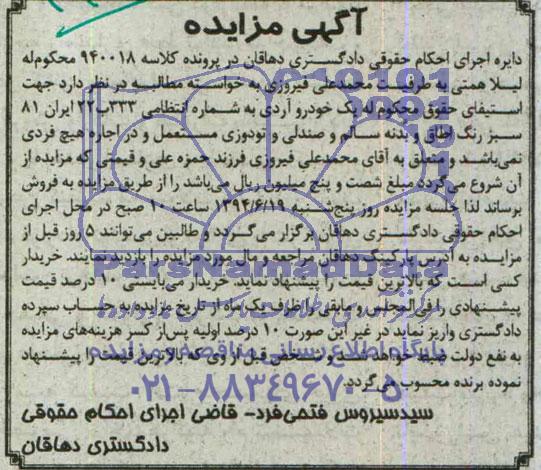 آگهی مزایده
دایره اجرای احکام حقوقی دادگستری دهاقان در پرونده کلاسه ۹۴۰۰۱۸ محکوم‌له
لیلا همتی به طرفیت محمدعلی فیروزی به خواسته مطالبه در نظر دارد جهت
استیفای حقوق محکوم‌له یک خودرو آردی به شماره انتظامی ۳۳۳ب۲۲ ایران ۸۱
سبز رنگ اطاق و بدنه سالم و صندلی و تودوزی مستعمل و در اجاره هیچ فردی
نمی‌باشد و متعلق به آقای محمدعلی فیروزی فرزند حمزه علی و قیمتی که مزایده از
آن شروع می‌گردد مبلغ شصت و پنج میلیون ریال می‌باشد را از طریق مزایده به فروش
برساند لذا جلسه مزایده روز پنج‌شنبه ۱۳۹۴/۶/۱۹ ساعت ۱۰ صبح در محل اجرای
احکام حقوقی دادگستری دهاقان برگزار می‌گردد و طالبین می‌توانند ۵ روز قبل از
مزایده به آدرس پارکینگ دهاقان مراجعه و مال مورد مزایده را بازدید نمایند. خریدار
کسی است که بالاترین قیمت را پیشنهاد نماید. خریدار می‌بایستی ۱۰ درصد قیمت
پیشنهادی را فی‌المجلس و مابقی را ظرف یک ماه از تاریخ مزایده به حساب سپرده
دادگستری واریز نماید در غیر این صورت ۱۰ درصد اولیه پس‌از کسر هزینه‌های مزایده
به نفع دولت ضبط خواهد شد و شخص قبل از وی که بالاترین قیمت را پیشنهاد
نموده برنده محسوب می‌گردد.
سیدسیروس فتحی‌فرد- قاضی اجرای احکام حقوقی
دادگستری دهاقان
ParsNamadData
پایگاه اطلاع رسانی مناقصه و مزایده
۰۲۱-۸۸۳۴۹۶۷۰-۵